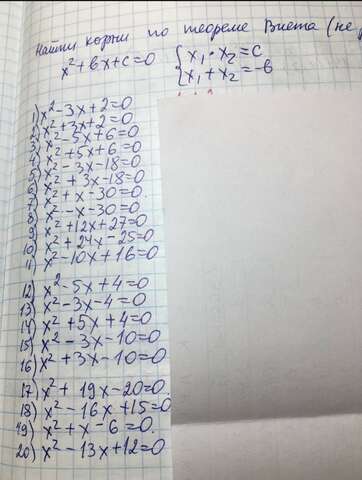 Найти корни по теореме Виета (не
x²+bx+c=0 {x₁·x₂=c
x₁+x₂=-b
1) x²-3x+2=0
2) x²+3x+2=0
3) x²-5x+6=0
4) x²+5x+6=0
5) x²-3x-18=0
6) x²+3x-18=0
7) x²+x-30=0.
8) x²-x-30=0.
9) x²+12x+27=0
10) x²+24x-25=0
11) x²-10x+16=0
12) x²-5x+4=0
13) x²-3x-4=0
14) x²+5x+4=0
15) x²-3x-10=0
16) x²+3x-10=0
17) x²+19x-20=0
18) x²-16x+15=0
19) x²+x-6=0.
20) x²-13x+12=0